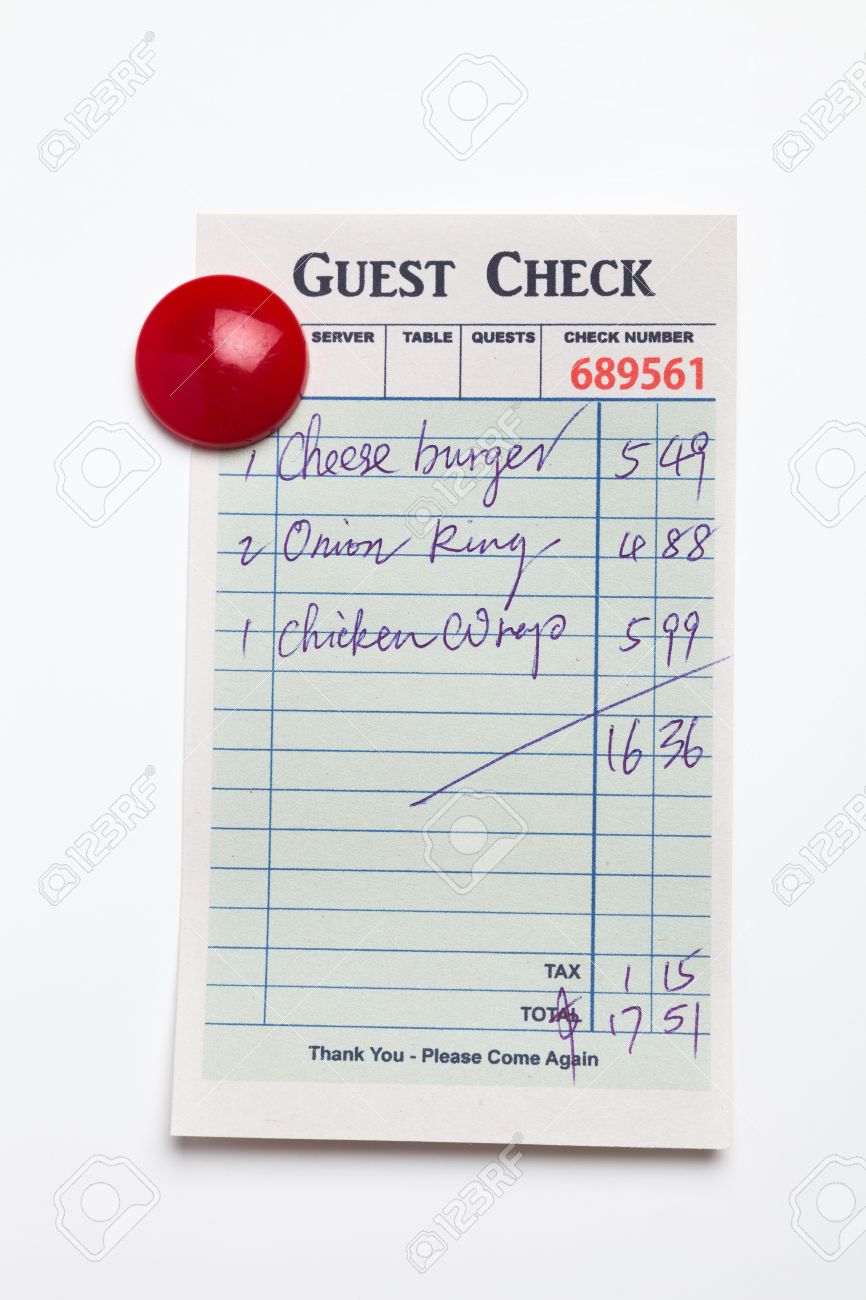 GUEST CHECK
SERVER TABLE QUESTS CHECK NUMBER
689561
1 Cheese burger 5 49
2 Onion Ring 4 88
1 Chicken Wrap 5 99
16 36
TAX 1 15
TOTAL $ 17 51
Thank You - Please Come Again
123RF
123RF
123RF
123RF
123RF
123RF